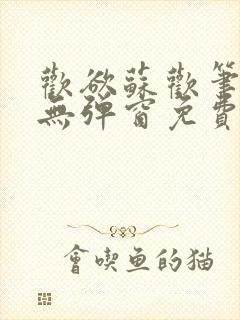 歡欲蘇歡筆
無彈窗免費
會喫魚的猫